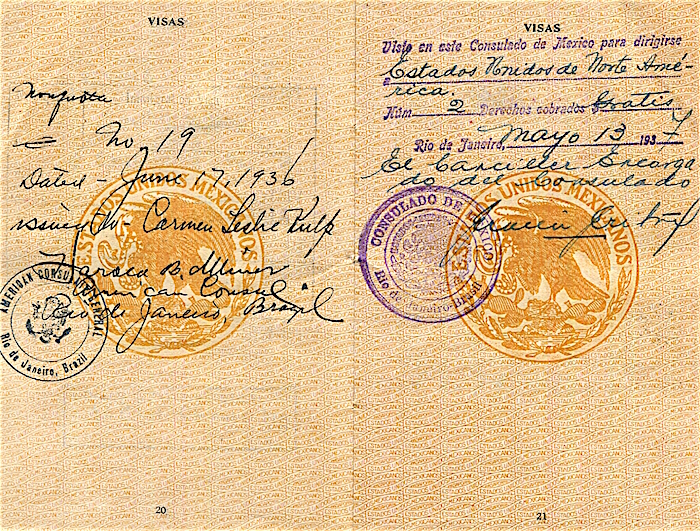 VISAS
Nonquota
No 19
Dated - June 17, 1936
issued to - Carmen Leslie Kulp
Harold B. Minor
American Consul
Rio de Janeiro, Brazil
AMERICAN CONSULATE GENERAL
Rio de Janeiro, Brazil
ESTADOS UNIDOS MEXICANOS
20
VISAS
Visto en este Consulado de Mexico para dirigirse
a Estados Unidos de Norte Amé-
rica.
Núm 2 Derechos cobrados Gratis
Rio de Janeiro, Mayo 13 1937
El Canciller Encarga
do del Consulado
CONSULADO DE MEXICO
Rio de Janeiro Brasil
UNIDOS MEXICANOS
21